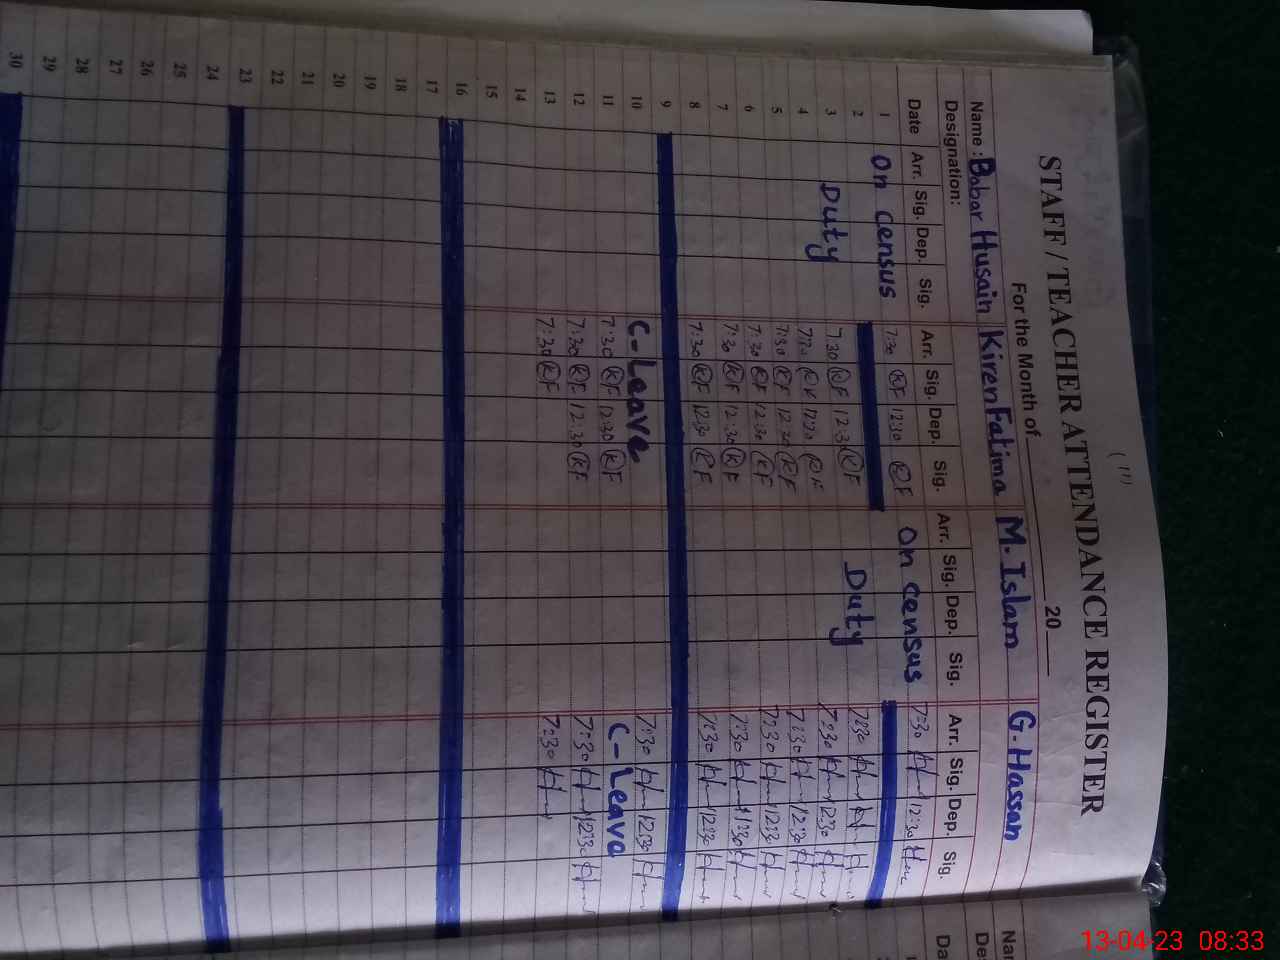 (11)
STAFF / TEACHER ATTENDANCE REGISTER
For the Month of 20
Name : Babar Husain Kiren Fatima M. Islam G. Hassan
Designation:
Date Arr. Sig. Dep. Sig. Arr. Sig. Dep. Sig. Arr. Sig. Dep. Sig. Arr. Sig. Dep. Sig.
1 On census 7:30 KF 12:30 KF On census 7:30 12:30
2
3 Duty 7:30 KF 12:30 KF Duty 7:30
4 7:30 KF 12:30 KF 7:30 12:30
5 7:30 KF 12:30 KF 7:30 12:30
6 7:30 KF 12:30 KF 7:30 12:30
7 7:30 KF 12:30 KF 7:30 12:30
8 7:30 KF 12:30 KF 7:30 12:30
9
10 C-Leave 7:30 12:30
11 7:30 KF 12:30 KF C-Leave
12 7:30 KF 12:30 KF 7:30 12:30
13 7:30 KF 7:30
14
15
16
17
18
19
20
21
22
23
24
25
26
27
28
29
30
Nar
De
Da
13-04-23 08:33